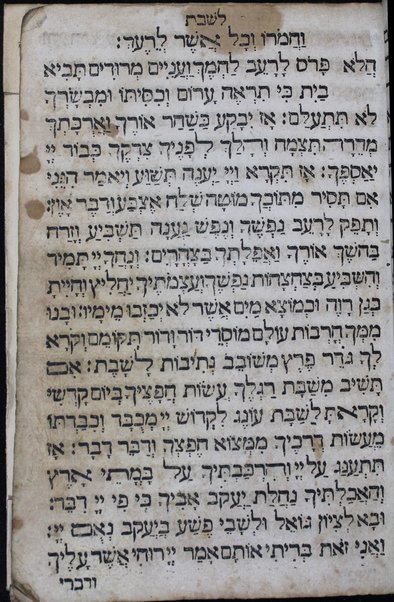 לשבת
וַחֲמֹרוֹ וְכָל אֲשֶׁר לְרֵעֶךָ:
הֲלֹא פָּרֹס לָרָעֵב לַחְמֶךָ וַעֲנִיִּים מְרוּדִים תָּבִיא
בַיִת כִּי תִרְאֶה עָרוֹם וְכִסִּיתוֹ וּמִבְּשָׂרְךָ
לֹא תִתְעַלָּם: אָז יִבָּקַע כַּשַּׁחַר אוֹרֶךָ וַאֲרֻכָתְךָ
מְהֵרָה תִצְמָח וְהָלַךְ לְפָנֶיךָ צִדְקֶךָ כְּבוֹד יְיָ
יַאַסְפֶךָ: אָז תִּקְרָא וַיְיָ יַעֲנֶה תְּשַׁוַּע וְיֹאמַר הִנֵּנִי
אִם תָּסִיר מִתּוֹכְךָ מוֹטָה שְׁלַח אֶצְבַּע וְדַבֶּר אָוֶן:
וְתָפֵק לָרָעֵב נַפְשֶׁךָ וְנֶפֶשׁ נַעֲנָה תַּשְׂבִּיעַ וְזָרַח
בַּחֹשֶׁךְ אוֹרֶךָ וַאֲפֵלָתְךָ כַּצָּהֳרָיִם: וְנָחֲךָ יְיָ תָּמִיד
וְהִשְׂבִּיעַ בְּצַחְצָחוֹת נַפְשֶׁךָ וְעַצְמֹתֶיךָ יַחֲלִיץ וְהָיִיתָ
כְּגַן רָוֶה וּכְמוֹצָא מַיִם אֲשֶׁר לֹא יְכַזְּבוּ מֵימָיו: וּבָנוּ
מִמְּךָ חָרְבוֹת עוֹלָם מוֹסְדֵי דוֹר וָדוֹר תְּקוֹמֵם וְקֹרָא
לְךָ גֹּדֵר פֶּרֶץ מְשׁוֹבֵב נְתִיבוֹת לָשָׁבֶת: אִם
תָּשִׁיב מִשַּׁבָּת רַגְלֶךָ עֲשׂוֹת חֲפָצֶיךָ בְּיוֹם קָדְשִׁי
וְקָרָאתָ לַשַּׁבָּת עוֹנֶג לִקְדוֹשׁ יְיָ מְכֻבָּד וְכִבַּדְתּוֹ
מֵעֲשׂוֹת דְּרָכֶיךָ מִמְּצוֹא חֶפְצְךָ וְדַבֵּר דָּבָר: אָז
תִּתְעַנַּג עַל יְיָ וְהִרְכַּבְתִּיךָ עַל בָּמֳתֵי אָרֶץ
וְהַאֲכַלְתִּיךָ נַחֲלַת יַעֲקֹב אָבִיךָ כִּי פִּי יְיָ דִּבֵּר:
וּבָא לְצִיּוֹן גּוֹאֵל וּלְשָׁבֵי פֶשַׁע בְּיַעֲקֹב נְאֻם יְיָ:
וַאֲנִי זֹאת בְּרִיתִי אוֹתָם אָמַר יְיָ רוּחִי אֲשֶׁר עָלֶיךָ
ודברי